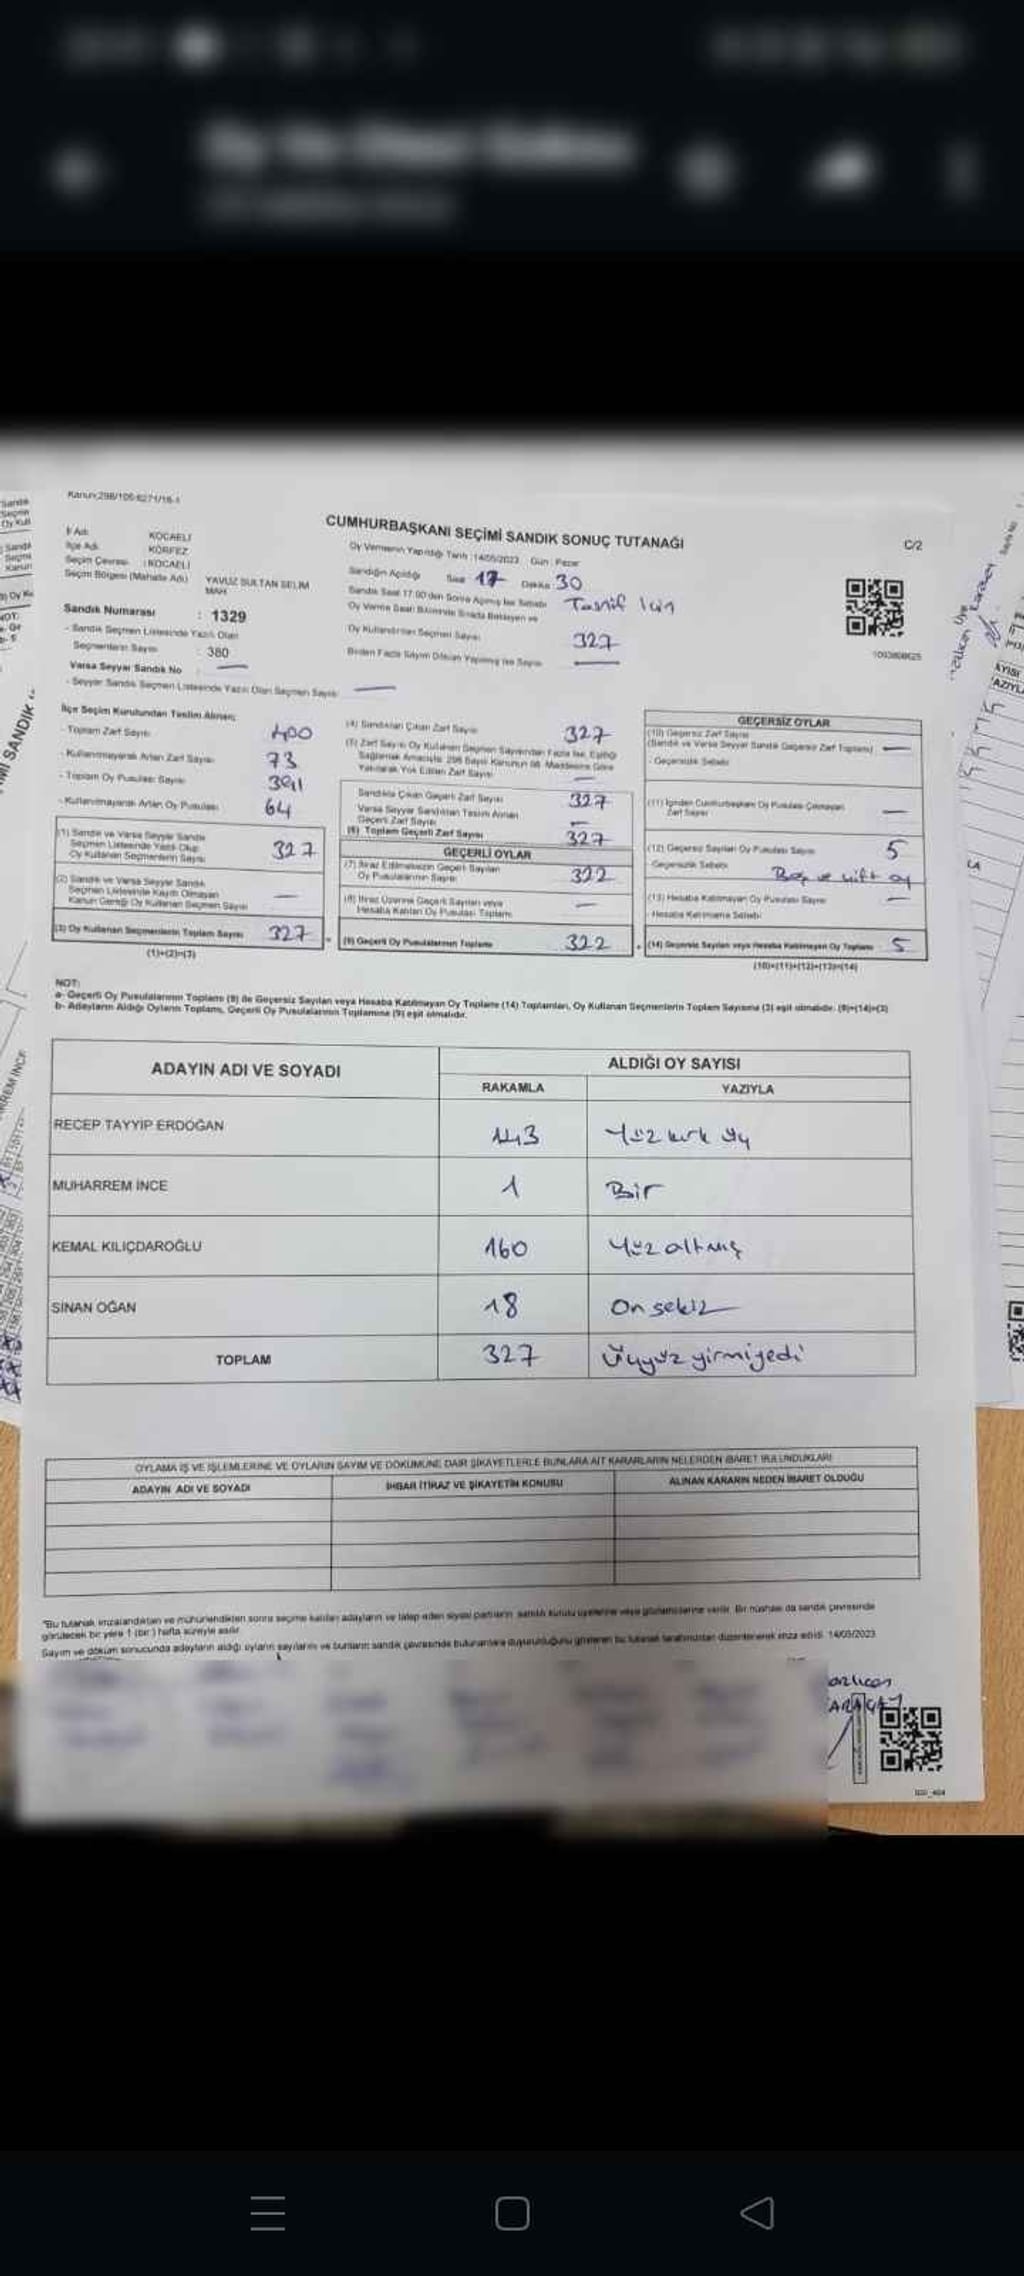 Kanun;298/105-6271/16-1
CUMHURBAŞKANI SEÇİMİ SANDIK SONUÇ TUTANAĞI
C/2
İl Adı KOCAELİ
İlçe Adı KÖRFEZ
Seçim Çevresi : KOCAELİ
Seçim Bölgesi (Mahalle Adı) YAVUZ SULTAN SELİM MAH
Sandık Numarası : 1329
- Sandık Seçmen Listesinde Yazılı Olan
Seçmenlerin Sayısı : 380
Varsa Seyyar Sandık No : —
- Seyyar Sandık Seçmen Listesinde Yazılı Olan Seçmen Sayısı —
Oy Vermenin Yapıldığı Tarih : 14/05/2023 Gün : Pazar
Sandığın Açıldığı Saat 17 Dakika 30
Sandık Saat 17.00'den Sonra Açılmış İse Sebebi Tasnif İçin
Oy Verme Saati Bitiminde Sırada Bekleyen ve
Oy Kullandırılan Seçmen Sayısı 327
Birden Fazla Sayım Döküm Yapılmış ise Sayısı —
1093808625
İlçe Seçim Kurulundan Teslim Alınan;
- Toplam Zarf Sayısı 400
- Kullanılmayarak Artan Zarf Sayısı 73
- Toplam Oy Pusulası Sayısı 391
- Kullanılmayarak Artan Oy Pusulası 64
(1) Sandık ve Varsa Seyyar Sandık
Seçmen Listesinde Yazılı Olup
Oy Kullanan Seçmenlerin Sayısı 327
(2) Sandık ve Varsa Seyyar Sandık
Seçmen Listesinde Kayıtlı Olmayan
Kanun Gereği Oy Kullanan Seçmen Sayısı —
(3) Oy Kullanan Seçmenlerin Toplam Sayısı 327
(1)+(2)=(3)
(4) Sandıktan Çıkan Zarf Sayısı 327
(5) Zarf Sayısı Oy Kullanan Seçmen Sayısından Fazla İse, Eşitliği
Sağlamak Amacıyla 298 Sayılı Kanunun 98. Maddesine Göre
Yakılarak Yok Edilen Zarf Sayısı —
Sandıkta Çıkan Geçerli Zarf Sayısı 327
Varsa Seyyar Sandıktan Teslim Alınan
Geçerli Zarf Sayısı —
(6) Toplam Geçerli Zarf Sayısı 327
GEÇERLİ OYLAR
(7) İtiraz Edilmeksizin Geçerli Sayılan
Oy Pusulalarının Sayısı 322
(8) İtiraz Üzerine Geçerli Sayılan veya
Hesaba Katılan Oy Pusulası Toplamı —
(9) Geçerli Oy Pusulalarının Toplamı 322
GEÇERSİZ OYLAR
(10) Geçersiz Zarf Sayısı
(Sandık ve Varsa Seyyar Sandık Geçersiz Zarf Toplamı) —
- Geçersizlik Sebebi
(11) İçinden Cumhurbaşkanı Oy Pusulası Çıkmayan
Zarf Sayısı —
(12) Geçersiz Sayılan Oy Pusulası Sayısı 5
- Geçersizlik Sebebi Boş ve çift oy
(13) Hesaba Katılmayan Oy Pusulası Sayısı —
- Hesaba Katılmama Sebebi
(14) Geçersiz Sayılan veya Hesaba Katılmayan Oy Toplamı 5
(10)+(11)+(12)+(13)=(14)
NOT:
a- Geçerli Oy Pusulalarının Toplamı (9) ile Geçersiz Sayılan veya Hesaba Katılmayan Oy Toplamı (14) Toplamları, Oy Kullanan Seçmenlerin Toplam Sayısına (3) eşit olmalıdır. (9)+(14)=(3)
b- Adayların Aldığı Oyların Toplamı, Geçerli Oy Pusulalarının Toplamına (9) eşit olmalıdır.
ADAYIN ADI VE SOYADI ALDIĞI OY SAYISI
RAKAMLA YAZIYLA
RECEP TAYYİP ERDOĞAN 143 Yüz kırk üç
MUHARREM İNCE 1 Bir
KEMAL KILIÇDAROĞLU 160 Yüz altmış
SİNAN OĞAN 18 On sekiz
TOPLAM 327 Üçyüz yirmiyedi
OYLAMA İŞ VE İŞLEMLERİNE VE OYLARIN SAYIM VE DÖKÜMÜNE DAİR ŞİKAYETLERLE BUNLARA AİT KARARLARIN NELERDEN İBARET BULUNDUKLARI
ADAYIN ADI VE SOYADI İHBAR İTİRAZ VE ŞİKAYETİN KONUSU ALINAN KARARIN NEDEN İBARET OLDUĞU
"Bu tutanak imzalandıktan ve mühürlendikten sonra seçime katılan adayların ve talep eden siyasi partilerin sandık kurulu üyelerine veya gözlemcilerine verilir. Bir nüshası da sandık çevresinde
görülecek bir yere 1 (bir) hafta süreyle asılır.
Sayım ve döküm sonucunda adayların aldığı oyların sayılarını ve bunların sandık çevresinde bulunanlara duyurulduğunu gösteren bu tutanak tarafımızdan düzenlenerek imza edildi. 14/05/2023